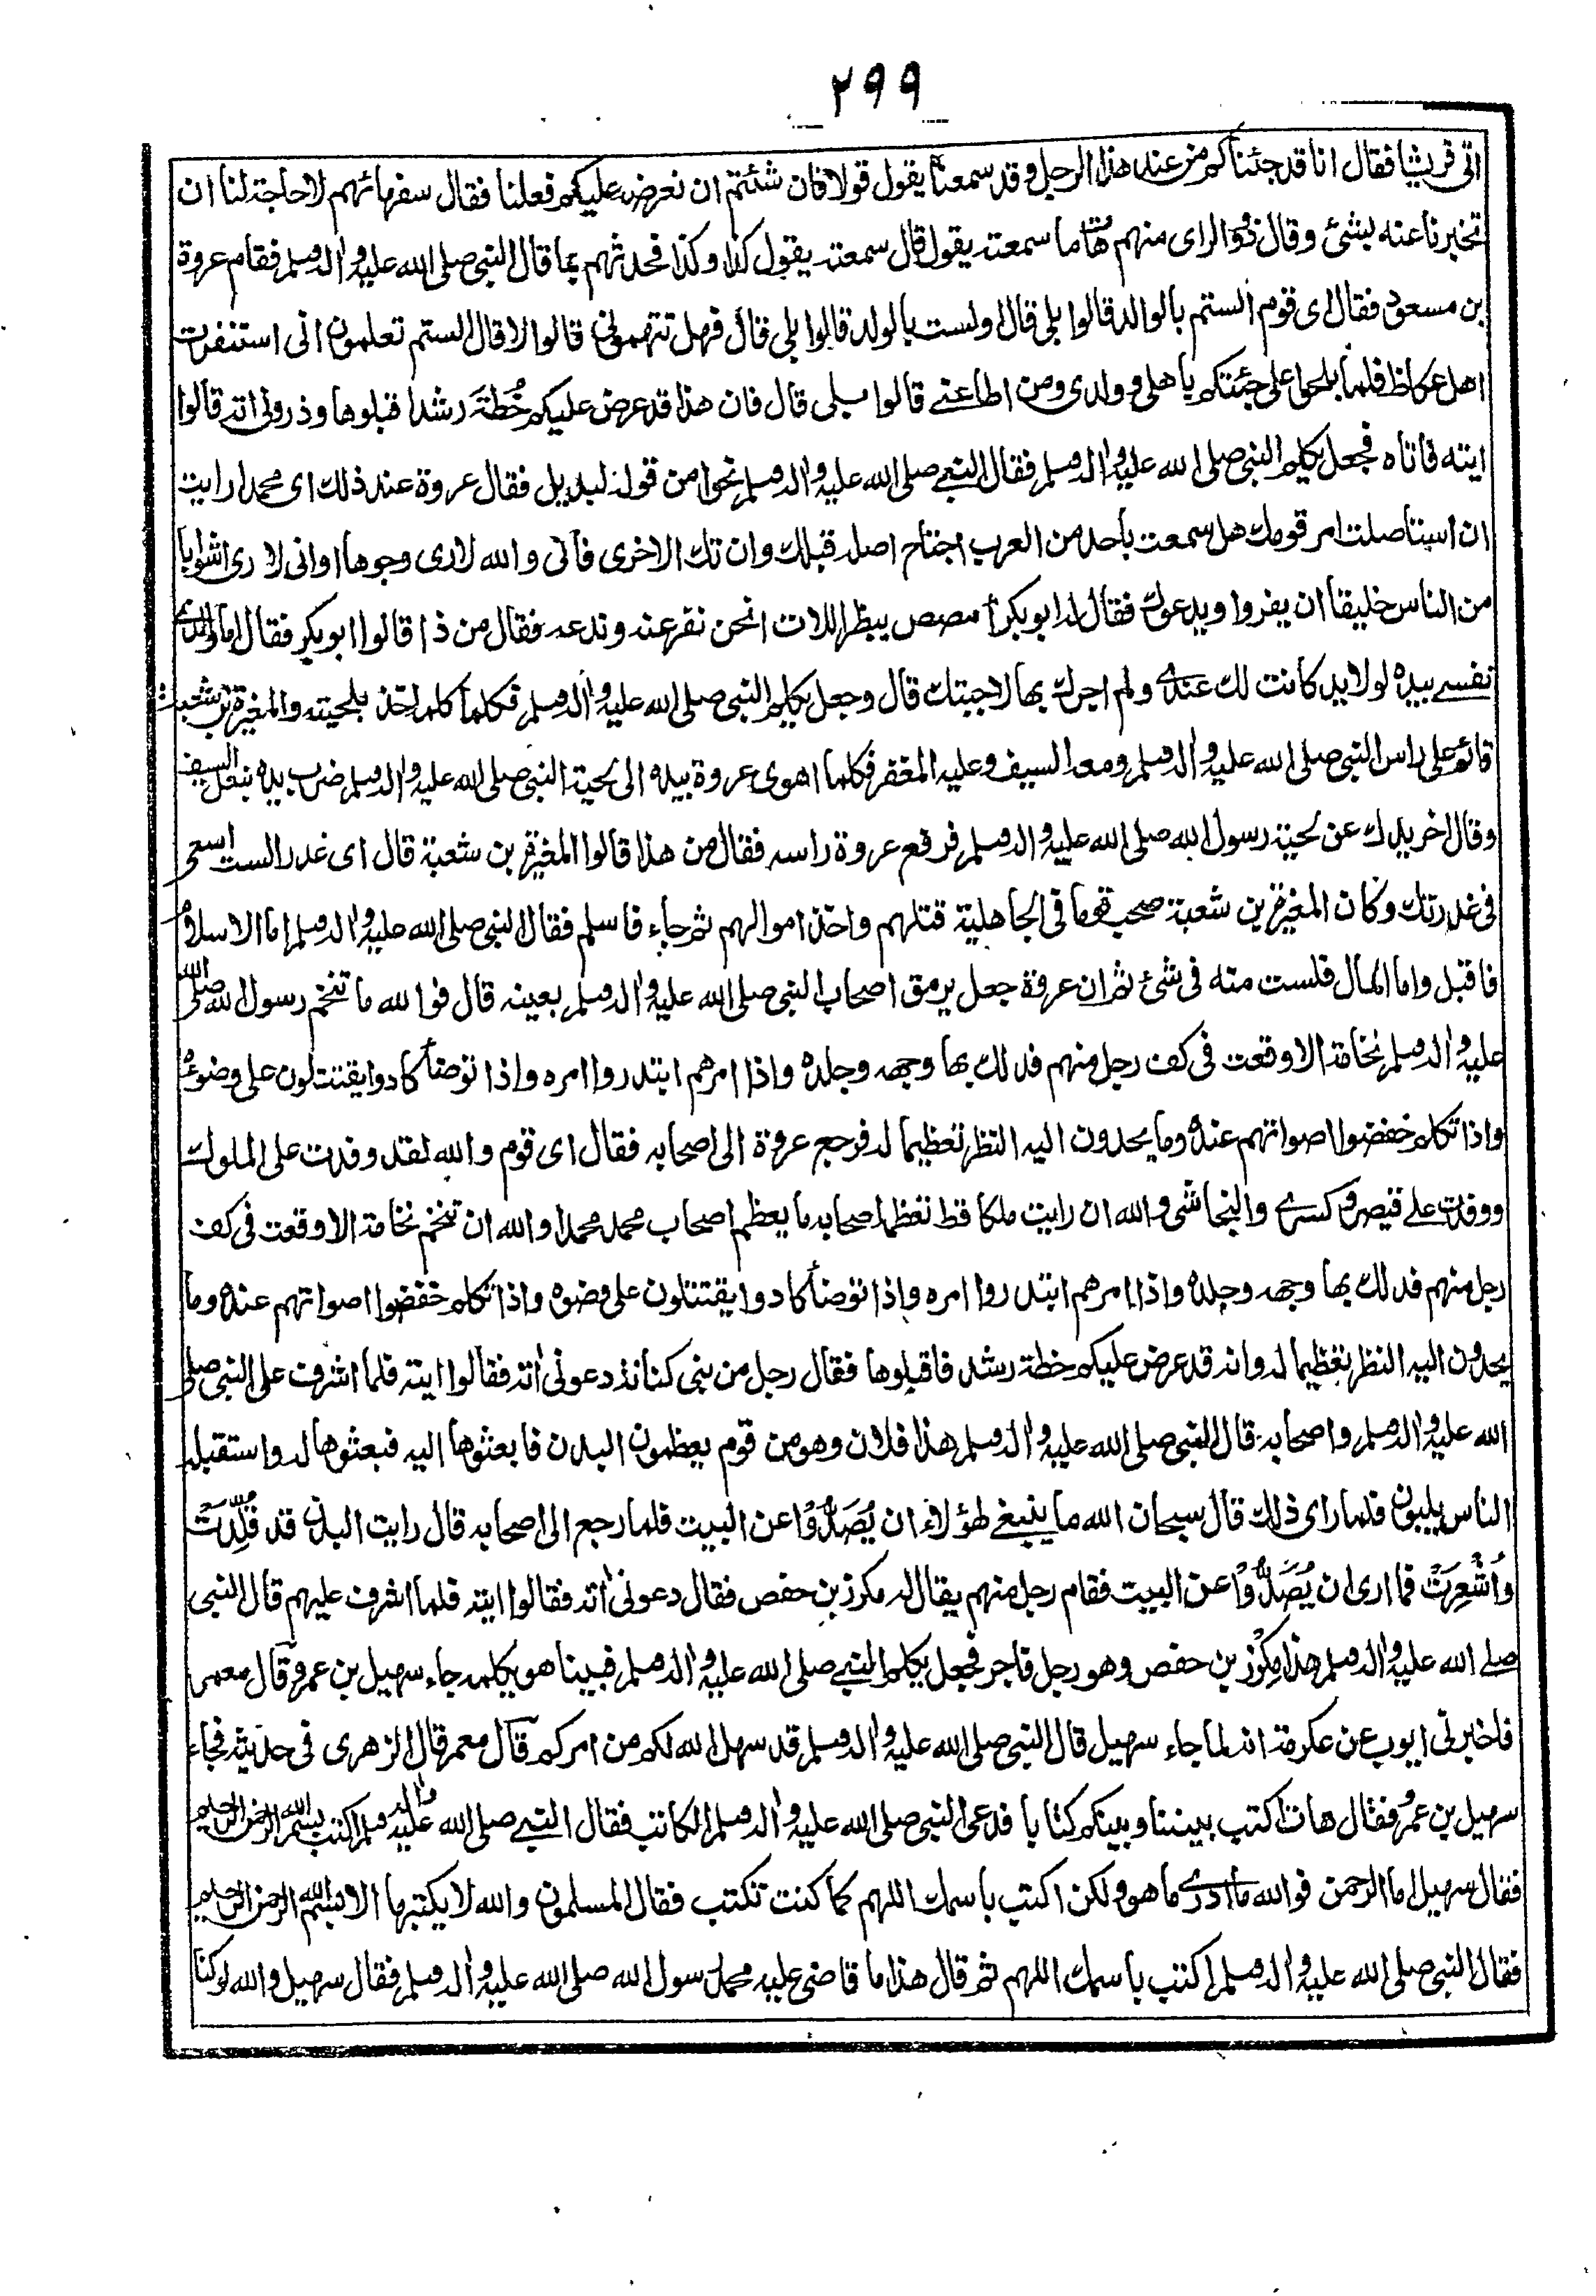 ۲۹۹
اتى قريشا فقال انا قد جئناكم من عند هذا الرجل وقد سمعنا يقول قولا فان شئتم ان نعرض عليكم فعلنا فقال سفهائهم لا حاجة لنا ان
تخبرنا عنه بشئ وقال ذو الراى منهم هات ما سمعته يقول قال سمعته يقول كذا وكذا فحدثهم بما قال النبى صلى الله عليه واٰله وسلم فقام عروة
بن مسعود فقال اى قوم الستم بالوالد قالوا بلى قال اولست بالولد قالوا بلى قال فهل تتهمونى قالوا لا قال الستم تعلمون انى استنفرت
اهل عكاظ فلما بلحوا على جئتكم باهلى وولدى ومن اطاعنے قالوا بلى قال فان هذا قد عرض عليكم خُطةَ رشد اقبلوها وذرونى اته قالوا
ايته فاتاه فجعل يكلم النبى صلى الله عليه واٰله وسلم فقال النبے صلى الله عليه واٰله وسلم نحوا من قوله لبديل فقال عروة عند ذلك اى محمد ارايت
ان استاصلت امر قومك هل سمعت باحد من العرب اجتاح اصله قبلك وان تك الاخرى فانى والله لارى وجوها او انى لا رى اشوابا
من الناس خليقا ان يفروا ويدعوك فقال له ابو بكر أمصص ببظر اللات انحن نفر عنه وندعه فقال من ذا قالوا ابو بكر فقال اما والذى
نفسے بيده لولا يد كانت لك عندے ولم اجزك بها لاجبتك قال وجعل يكلم النبى صلى الله عليه واٰله وسلم فكلما كلمه اخذ بلحيته والمغيرة بن شعبة
قائم على راس النبى صلى الله عليه واٰله وسلم ومعه السيف وعليه المغفر فكلما اهوى عروة بيده الى لحية النبى صلى الله عليه واٰله وسلم ضرب يده بنعل السيف
وقال اخر يدك عن لحية رسول الله صلى الله عليه واٰله وسلم فرفع عروة راسه فقال من هذا قالوا المغيرة بن شعبة قال اى غدر الست اسعى
فى غدرتك وكان المغيرة بن شعبة صحب قوما فى الجاهلية قتلهم واخذ اموالهم ثم جاء فاسلم فقال النبى صلى الله عليه واٰله وسلم اما الاسلام
فاقبل واما المال فلست منه فى شئ ثم ان عروة جعل يرمق اصحاب النبى صلى الله عليه واٰله وسلم بعينه قال فوالله ما تنخم رسول الله صلى الله
عليه واٰله وسلم نخامة الا وقعت فى كف رجل منهم فدلك بها وجهه وجلده واذا امرهم ابتدروا امره واذا توضأ كادوا يقتتلون على وضوئه
واذا تكلم خفضوا اصواتهم عنده وما يحدون اليه النظر تعظيما له فرجع عروة الى اصحابه فقال اى قوم والله لقد وفدت على الملوك
ووفدت علے قيصر وكسرے والنجاشى والله ان رايت ملكا قط تعظما اصحابه ما يعظم اصحاب محمد محمدا والله ان تنخم نخامة الا وقعت فى كف
رجل منهم فدلك بها وجهه وجلده واذا امرهم ابتدروا امره واذا توضأ كادوا يقتتلون على وضوه واذا تكلم خفضوا اصواتهم عنده وما
يحدون اليه النظر تعظيما له وانه قد عرض عليكم خطة رشد فاقبلوها فقال رجل من بنى كنانة دعونى اٰته فقالوا ايته فلما اشرف على النبى صلى
الله عليه واٰله وسلم واصحابه قال النبى صلى الله عليه واٰله وسلم هذا فلان وهو من قوم يعظمون البدن فابعثوها اليه فبعثوها له واستقبله
الناس يلبون فلما راى ذلك قال سبحان الله ما ينبغے لهؤلاء ان يُصَدُّوْا عن البيت فلما رجع الى اصحابه قال رايت البدن قد قُلِّدَتْ
وَاُشْعِرَتْ فما ارى ان يُصَدُّوْا عن البيت فقام رجل منهم يقال له مكرز بن حفص فقال دعونى اٰته فقالوا ايته فلما اشرف عليهم قال النبى
صلے الله عليه واٰله وسلم هذا مِكرَز بن حفص وهو رجل فاجر فجعل يكلم النبے صلى الله عليه واٰله وسلم فبينا هو يكلمه جاء سهيل بن عمرو قال معمر
فاخبرنى ايوب عن عكرمة انه لما جاء سهيل قال النبى صلى الله عليه واٰله وسلم قد سهل الله لكم من امركم قال معمر قال الزهرى فى حديثه فجاء
سهيل بن عمرو فقال هات اكتب بيننا وبينكم كتابا فدعى النبى صلى الله عليه واٰله وسلم الكاتب فقال النبے صلى الله عليه واٰله وسلم اكتب بسم الله الرحمن الرحيم
فقال سهيل اما الرحمن فوالله ما ادرے ما هو ولكن اكتب باسمك اللهم كما كنت تكتب فقال المسلمون والله لا يكتبها الا بسم الله الرحمن الرحيم
فقال النبى صلى الله عليه واٰله وسلم اكتب باسمك اللهم ثم قال هذا ما قاضى عليه محمد رسول الله صلى الله عليه واٰله وسلم فقال سهيل والله لو كنا